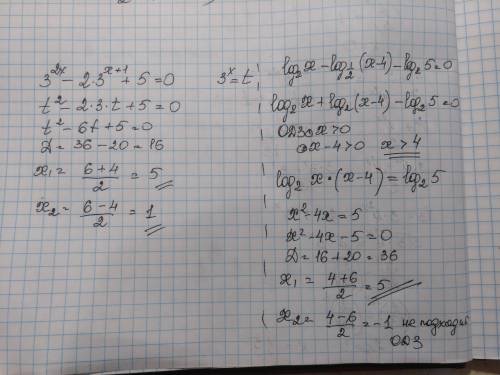 3^{2x} - 2·3^{x+1} + 5 = 0   3^x = t
t^2 - 2·3·t + 5 = 0
t^2 - 6t + 5 = 0
D = 36 - 20 = 16
x_1 = \frac{6+4}{2} = 5
x_2 = \frac{6-4}{2} = 1
log_2 x - log_{\frac{1}{2}} (x-4) - log_2 5 = 0
log_2 x + log_2 (x-4) - log_2 5 = 0
ОДЗ x > 0
x - 4 > 0   x > 4
log_2 x·(x-4) = log_2 5
x^2 - 4x = 5
x^2 - 4x - 5 = 0
D = 16 + 20 = 36
x_1 = \frac{4+6}{2} = 5
x_2 = \frac{4-6}{2} = -1 не подходит
ОДЗ